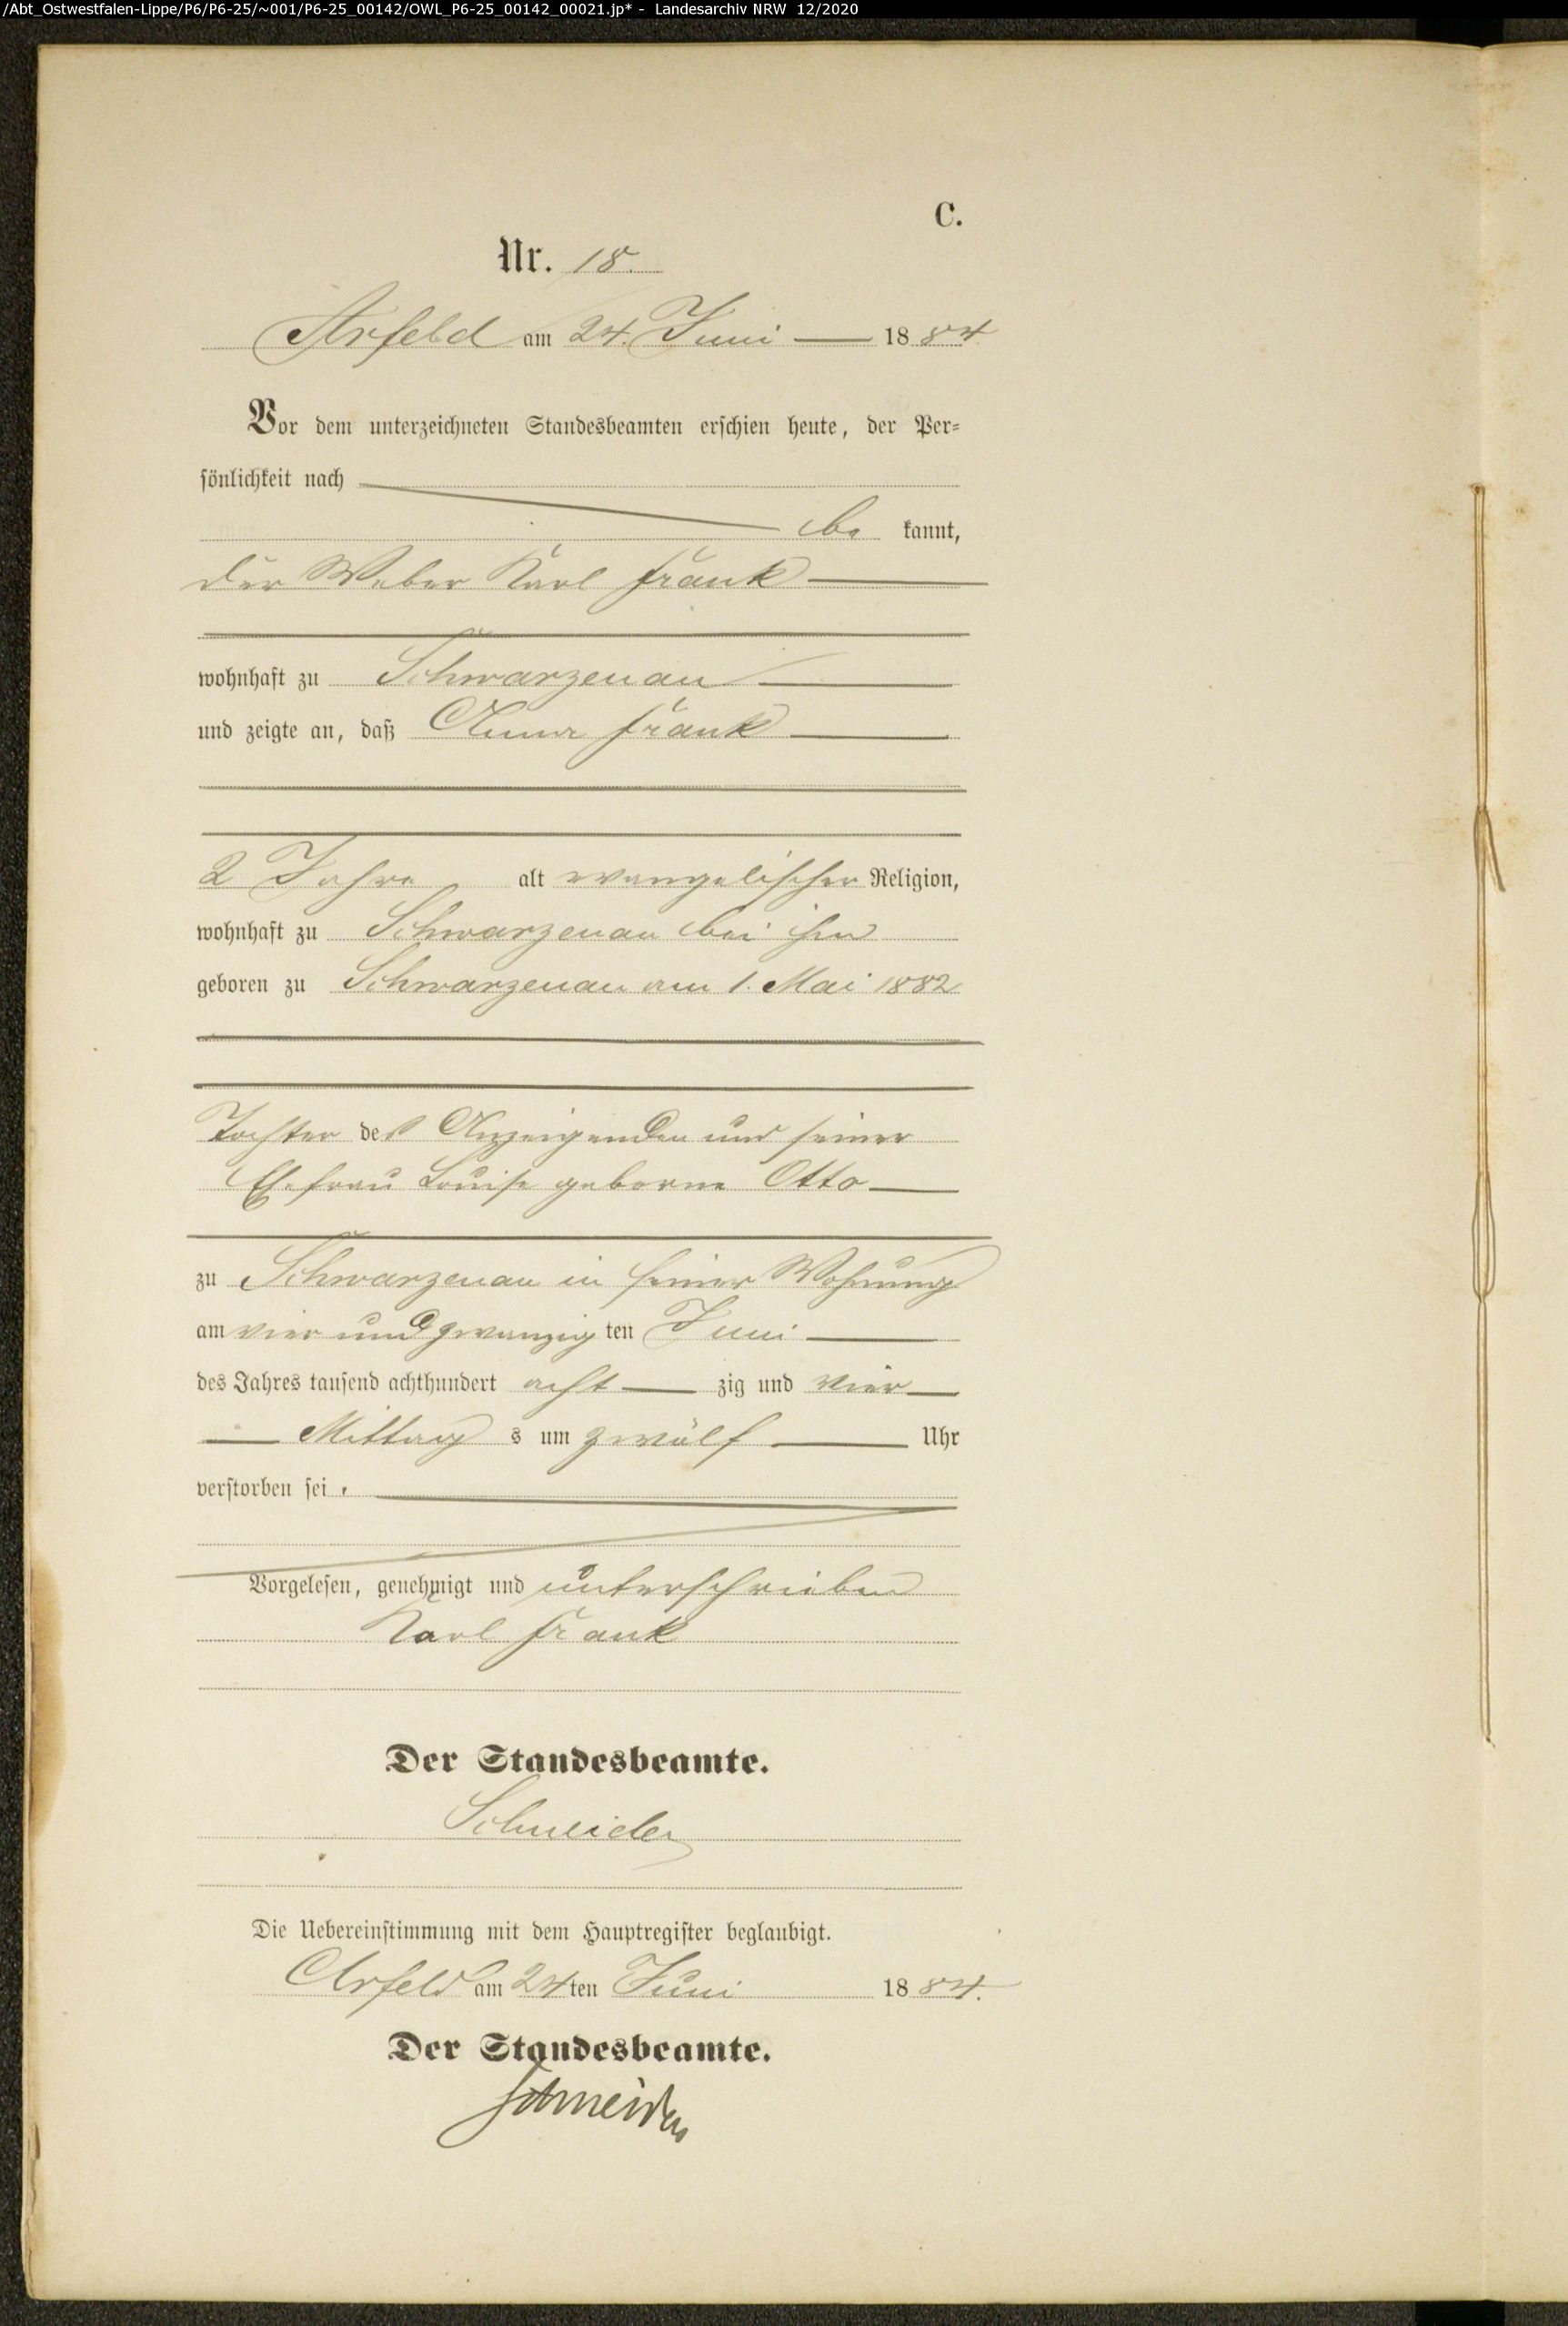 /Abt_Ostwestfalen-Lippe/P6/P6-25/~001/P6-25_00142/OWL_P6-25_00142_00021.jp* - Landesarchiv NRW 12/2020
C.
Nr. 18.
Arfeld am 24. Juni 1884
Vor dem unterzeichneten Standesbeamten erschien heute, der Per-
sönlichkeit nach
be kannt,
der Weber Karl Frank
wohnhaft zu Schwarzenau
und zeigte an, daß Anna Frank
2 Jahre alt evangelischer Religion,
wohnhaft zu Schwarzenau bei ihm
geboren zu Schwarzenau am 1. Mai 1882
Tochter des Anzeigenden und seiner
Ehefrau Louise geborne Otto
zu Schwarzenau in seiner Wohnung
am vier und zwanzig ten Juni
des Jahres tausend achthundert acht zig und vier
Mittag s um zwölf Uhr
verstorben sei.
Vorgelesen, genehmigt und unterschrieben
Karl Frank
Der Standesbeamte.
Schneider
Die Uebereinstimmung mit dem Hauptregister beglaubigt.
Arfeld am 24ten Juni 1884.
Der Standesbeamte.
Schneider